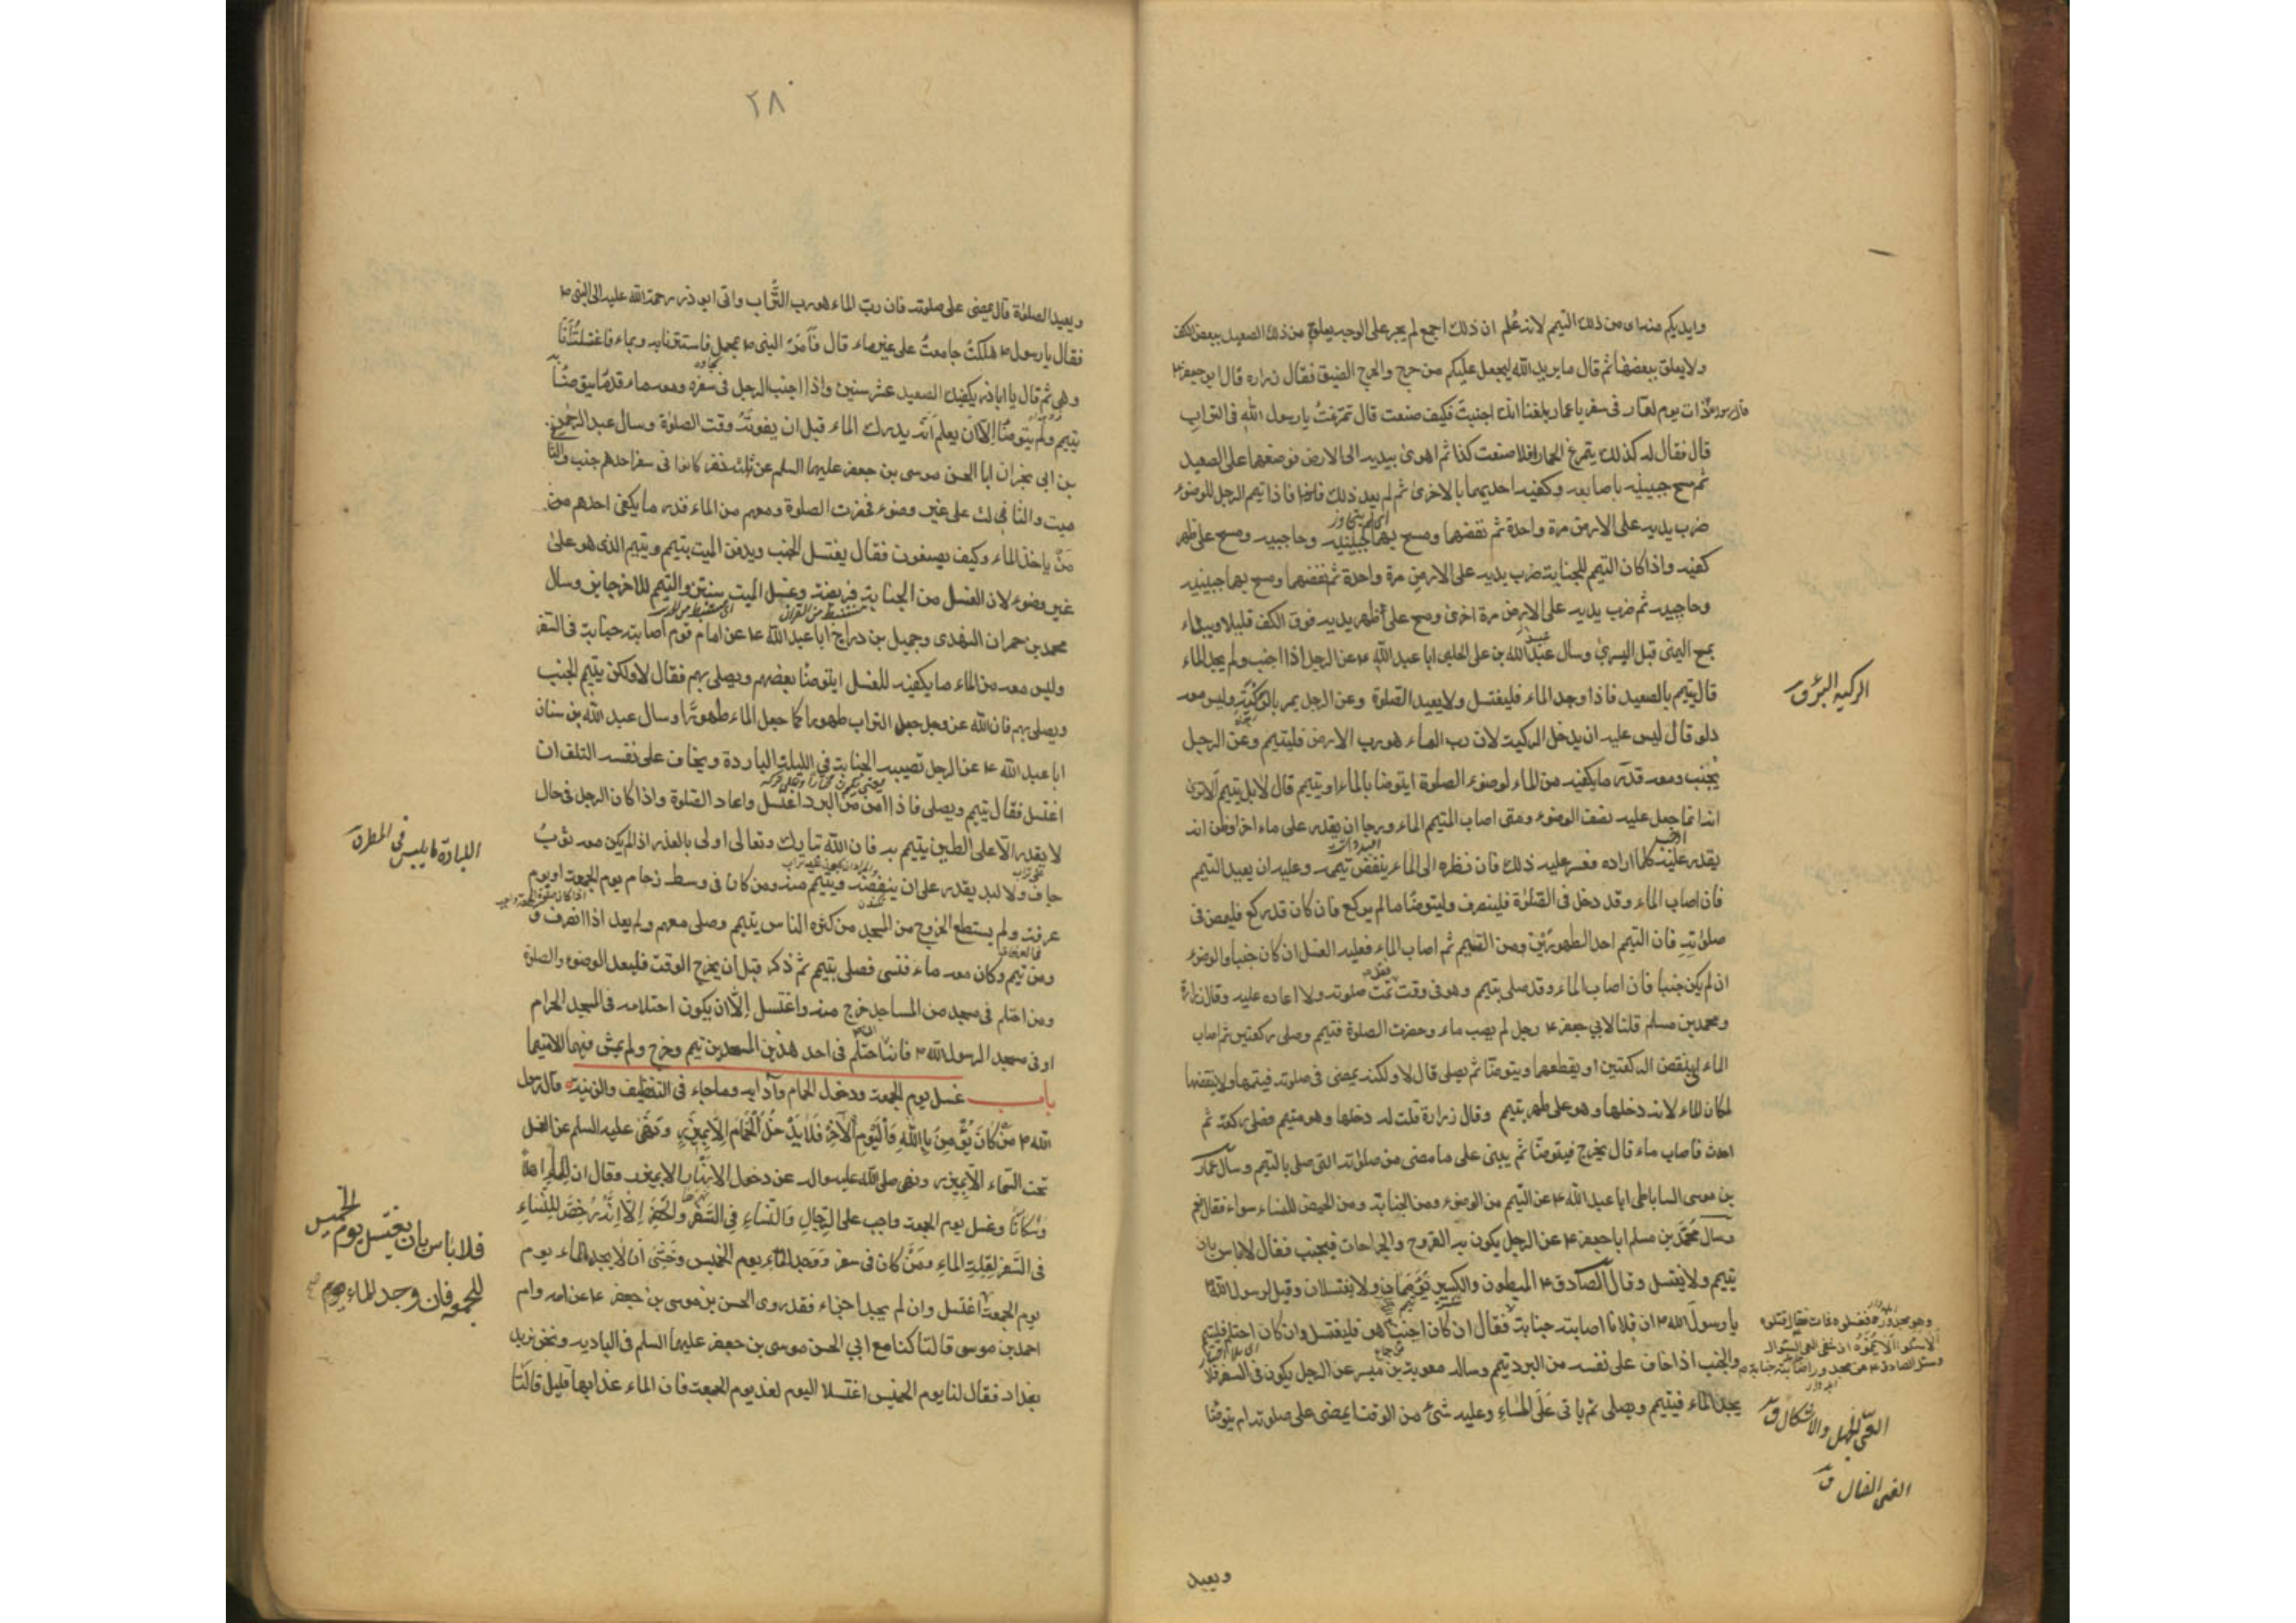 وايديكم منه اى من ذلك التيمم لانه علم ان ذلك اجمع لم يجر على الوجه يعلق من ذلك الصعيد ببعض الكف
ولا يعلق ببعضها ثم قال ما يريد الله ليجعل عليكم من حرج والحرج الضيق فقال زراره قال ابو جعفر ع
قال رسول ذات يوم لعمار فى سفر يا عمار بلغنا انك اجنبت فكيف صنعت قال تمرغت يا رسول الله فى التراب
قال فقال له كذلك يتمرغ الحمار افلا صنعت كذا ثم اهوى بيديه الى الارض فوضعها على الصعيد
ثم مسح جبينيه باصابعه وكفيه احديهما بالاخرى ثم لم يعد ذلك فاذا تيمم الرجل للوضوء
ضرب يديه على الارض مرة واحدة ثم نفضها ومسح بها جبينيه وحاجبيه ومسح على ظهر
كفيه واذا كان التيمم للجنابة ضرب يديه على الارض مرة واحدة ثم نفضها ومسح بها جبينيه
وحاجبيه ثم ضرب يديه على الارض مرة اخرى ومسح على ظهر يديه فوق الكف قليلا ويبداء
بمسح اليمنى قبل اليسرى وسال عبيد الله بن على الحلبى ابا عبد الله ع عن الرجل اذا اجنب ولم يجد الماء
قال يتيمم بالصعيد فاذا وجد الماء فليغتسل ولا يعيد الصلوة وعن الرجل يمر بالركية وليس معه
دلو قال ليس عليه ان يدخل الركية لان رب الماء هو رب الارض فليتيمم وعن الرجل
يجنب ومعه قدر ما يكفيه من الماء لوضوء الصلوة ايتوضا بالماء او يتيمم قال لا بل يتيمم الا ترى
انه انما جعل عليه نصف الوضوء ومتى اصاب المتيمم الماء ورجا ان يقدر على ماء اخر او ظن انه
يقدر عليه كلما اراده فعسر عليه ذلك فان نظره الى الماء ينقض تيممه وعليه ان يعيد التيمم
فان اصاب الماء وقد دخل فى الصلوة فلينصرف وليتوضا ما لم يركع فان كان قد ركع فليمض فى
صلوته فان التيمم احد الطهورين ومن التيمم ثم اصاب الماء فعليه الغسل ان كان جنبا والوضوء
ان لم يكن جنبا فان اصاب الماء وقد صلى بتيمم وهو فى وقت تمت صلوته ولا اعاده عليه وقال زرارة
ومحمد بن مسلم قلنا لابي جعفر ع رجل لم يصب ماء وحضرت الصلوة فتيمم وصلى ركعتين ثم اصاب
الماء اينقض الركعتين او يقطعهما ويتوضا ثم يصلى قال لا ولكنه يمضى فى صلوته فيتمها ولا ينقضها
لمكان الماء لانه دخلها وهو على طهر بتيمم وقال زرارة قلت له دخلها وهو متيمم فصلى ركعة ثم
احدث فاصاب ماء قال يخرج فيتوضا ثم يبنى على ما مضى من صلوته التى صلى بالتيمم وسال عمار
بن موسى الساباطى ابا عبد الله ع عن التيمم من الوضوء ومن الجنابة ومن الحيض للنساء سواء فقال نعم
وسال محمد بن مسلم ابا جعفر ع عن الرجل يكون به القروح والجراحات فيجنب فقال لا باس بان
يتيمم ولا يغتسل وقال الصادق ع المبطون والكسير تيممان ولا يغتسلان وقيل لرسول الله
يا رسول الله ان فلانا اصابته جنابة فقال ان كان اجنب هو فليغتسل وان كان احتلم فليتيمم
والجنب اذا خاف على نفسه من البرد تيمم وساله معوية بن ميسر عن الرجل يكون فى السفر فلا
يجد الماء فيتيمم ويصلى ثم ياتى على الماء وعليه شئ من الوقت ايمضى على صلوته ام يتوضا
الركية البئر ق
العى الجهل والاشكال ق
ويعيد
٢٨
ويعيد الصلوة قال يمضى على صلوته فان رب الماء هو رب التراب واتى ابو ذر رحمة الله عليه الى النبى
فقال يا رسول هلكت جامعت على غير ماء قال فامر النبى بمحمل فاستترنا به وبماء فاغتسلت انا
وهى ثم قال يا اباذر يكفيك الصعيد عشر سنين واذا اجنب الرجل فى سفره ومعه ماء قدر ما يتوضا به
تيمم ولم يتوضا الا ان يعلم انه يدرك الماء قبل ان يفوته وقت الصلوة وسال عبد الرحمن
بن ابى نجران ابا الحسن موسى بن جعفر عليهما السلم عن ثلثة نفر كانوا فى سفر احدهم جنب والثانى
ميت والثالث على غير وضوء فحضرت الصلوة ومعهم من الماء قدر ما يكفى احدهم من
من ياخذ الماء وكيف يصنعون فقال يغتسل الجنب ويدفن الميت بتيمم ويتيمم الذى هو على
غير وضوء لان الغسل من الجنابة فريضة وغسل الميت سنة والتيمم للاخر جايز وسال
محمد بن حمران النهدى وجميل بن دراج ابا عبد الله ع عن امام قوم اصابته جنابة فى السفر
وليس معه من الماء ما يكفيه للغسل ايتوضا بعضهم ويصلى بهم فقال لا ولكن يتيمم الجنب
ويصلى بهم فان الله عز وجل جعل التراب طهورا كما جعل الماء طهورا وسال عبد الله بن سنان
ابا عبد الله ع عن الرجل تصيبه الجنابة فى الليلة الباردة ويخاف على نفسه التلف ان
اغتسل فقال يتيمم ويصلى فاذا امن من البرد اغتسل واعاد الصلوة واذا كان الرجل فى حال
لا يقدر الا على الطين يتيمم به فان الله تبارك وتعالى اولى بالعذر اذا لم يكن معه ثوب
جاف ولا لبد يقدر على ان ينفضه ويتيمم منه ومن كان فى وسط زحام يوم الجمعة او يوم
عرفة ولم يستطع الخروج من المسجد من كثرة الناس يتيمم وصلى معهم ولم يعد اذا انصرف
ومن تيمم وكان معه ماء فنسى فصلى بتيمم ثم ذكر قبل ان يخرج الوقت فليعد الوضوء والصلوة
ومن احتلم فى مسجد من المساجد خرج منه واغتسل الا ان يكون احتلامه فى المسجد الحرام
او فى مسجد الرسول الله فانه اذا احتلم فى احد هذين المسجدين تيمم وخرج ولم يمش فيهما الا متيمما
باب غسل يوم الجمعة ودخول الحمام وآدابه وما جاء فى التنظيف والزينة قال رسول
الله من كان يؤمن بالله واليوم الآخر فلا يدخل الحمام الا بمئزر ونهى عليه السلم عن الغسل
تحت السماء الا بمئزر ونهى صلى الله عليه واله عن دخول الانهار الا بمئزر وقال ان للماء اهلا
وسكانا وغسل يوم الجمعة واجب على الرجال والنساء فى السفر والحضر الا انه رخص للنساء
فى السفر لقلة الماء ومن كان فى سفر ووجد الماء يوم الخميس وخشى ان لا يجد الماء يوم
يوم الجمعة اغتسل وان لم يجد اجزاء فقد روى الحسن بن موسى بن جعفر ع عن امه وام
احمد بن موسى قالتا كنا مع ابي الحسن موسى بن جعفر عليهما السلم فى الباديه ونحن نريد
بغداد فقال لنا يوم الخميس اغتسلا اليوم لغد يوم الجمعة فان الماء غدا بها قليل قالتا
فلا باس بان يغتسل يوم الخميس
للجمعة فان وجد الماء يوم